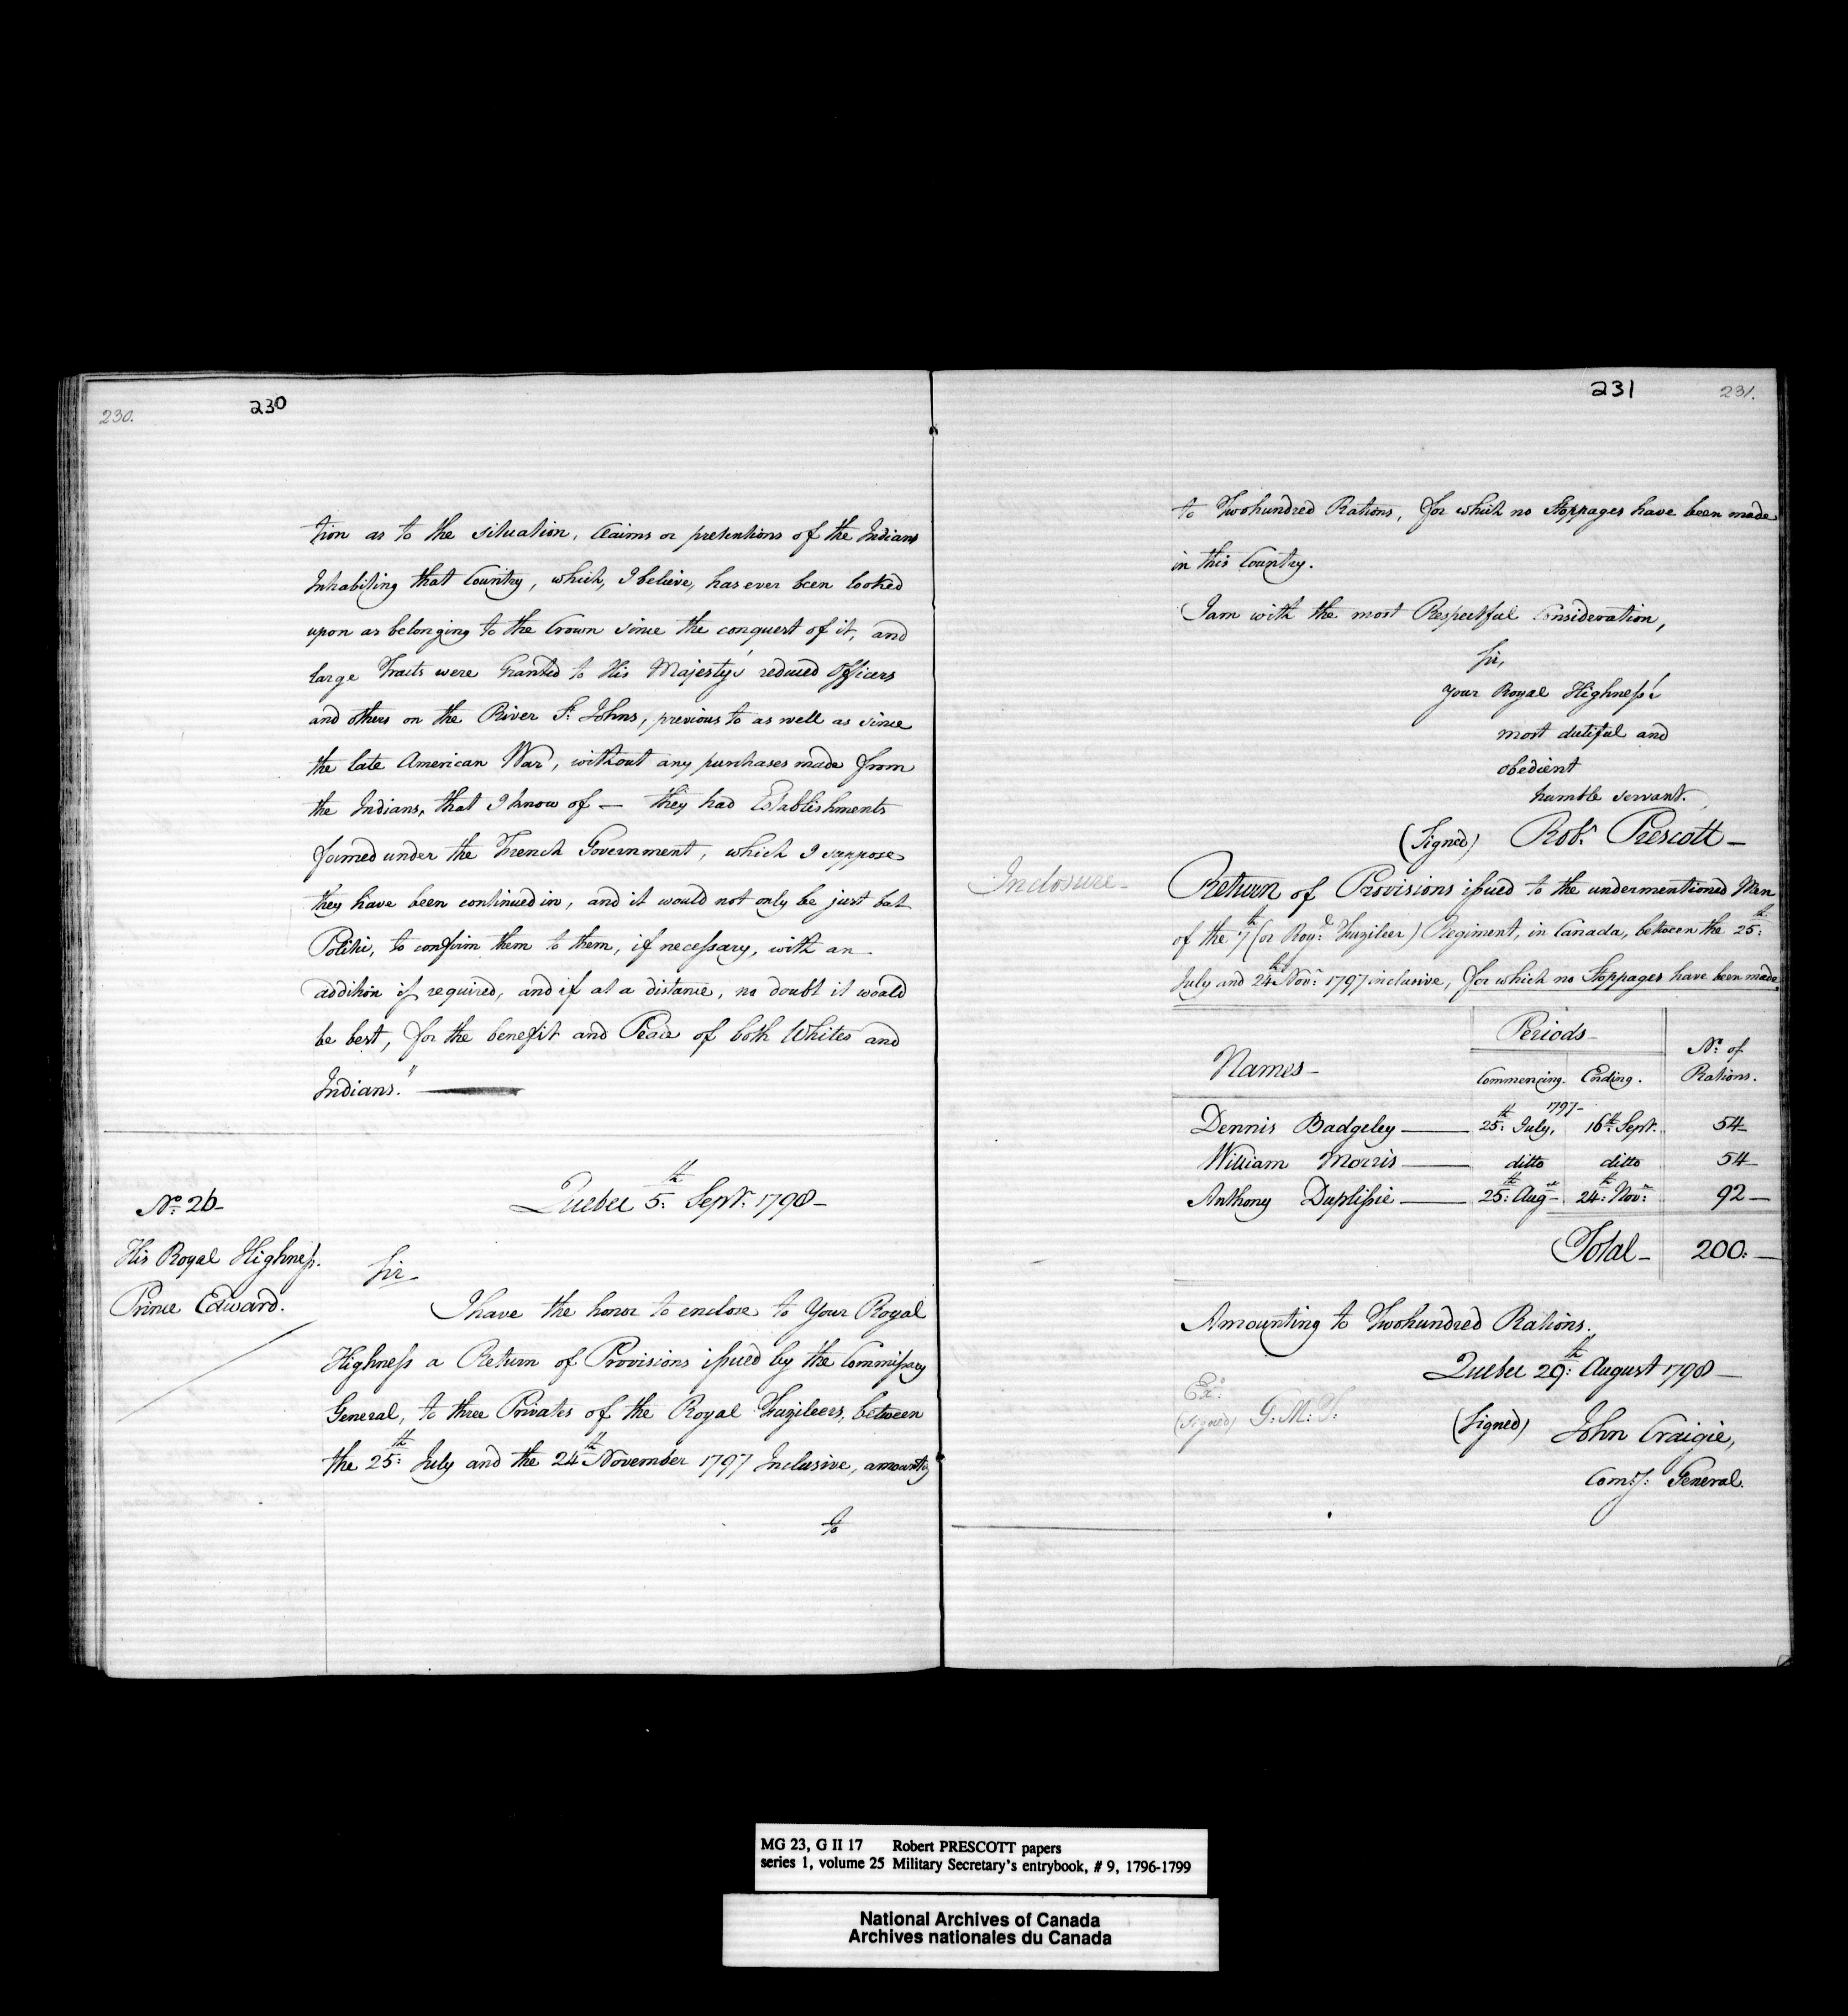 230.
230
tion as to the situation, Claims or pretentions of the Indians
Inhabiting that Country, which, I believe, has ever been looked
upon as belonging to the Crown since the conquest of it, and
large Tracts were Granted to His Majesty's reduced Officers
and others on the River St. Johns, previous to as well as since
the late American War, without any purchases made from
the Indians, that I know of — they had Establishments
formed under the French Government, which I suppose
they have been continued in, and it would not only be just but
Politic, to confirm them to them, if necessary, with an
addition if required, and if at a distance, no doubt it would
be best, for the benefit and Peace of both Whites and
Indians." —
No. 26-
His Royal Highness.
Prince Edward.
Quebec 5th: Septr. 1798-
Sir-
I have the honor to enclose to Your Royal
Highness a Return of Provisions issued by the Commissary
General, to three Privates of the Royal Fuzileers, between
the 25th: July and the 24th November 1797 Inclusive, amounting
to
231
231.
to Twohundred Rations, for which no Stoppages have been made
in this Country.
I am with the most Respectful Consideration,
Sir,
your Royal Highness's
most dutiful and
obedient
humble servant.
(Signed) Robt. Prescott-
Inclosure-
Return of Provisions issued to the undermentioned Men
of the 7th (or Royl. Fuzileer) Regiment, in Canada, between the 25th:
July and 24th Novr. 1797 inclusive, for which no Stoppages have been made.
Names- Periods- No. of Rations.
Commencing. Ending.
1797-
Dennis Badgeley — 25th: July, 16th: Sept. 54-
William Morris — ditto ditto 54-
Anthony Duplissie — 25th: Augt- 24th: Novr: 92-
Total- 200:-
Amounting to Twohundred Rations.
Quebec 29th: August 1798-
Exd:
(Signed) G: M: T:
(Signed) John Craigie,
Com:y: General.
MG 23, G II 17 Robert PRESCOTT papers
series 1, volume 25 Military Secretary's entrybook, # 9, 1796-1799
National Archives of Canada
Archives nationales du Canada